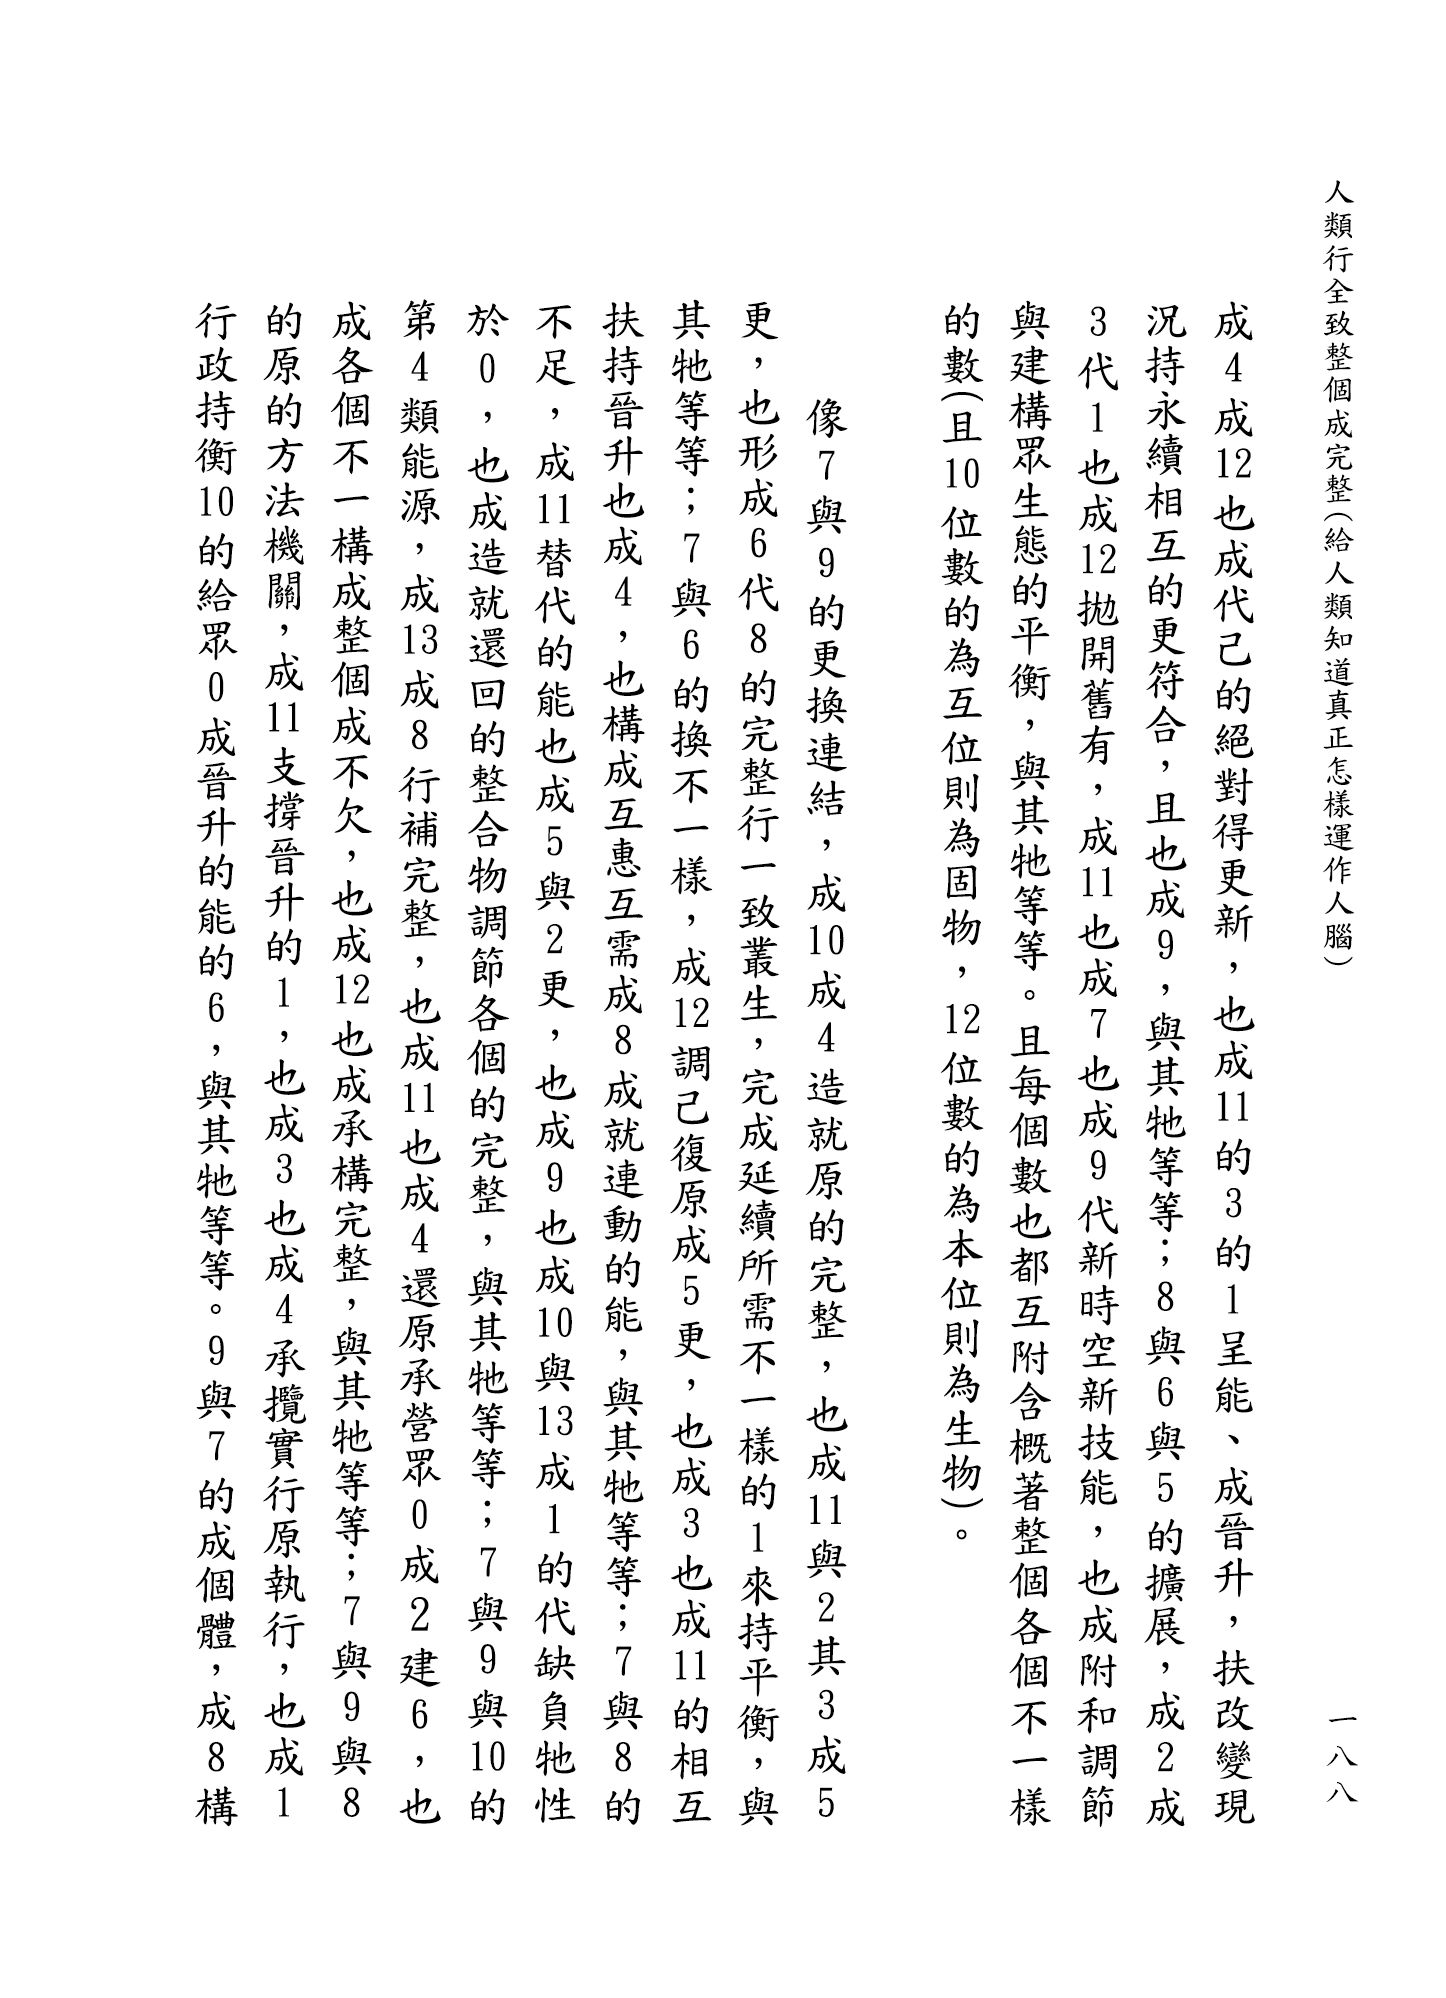 人類行全致整個成完整(給人類知道真正怎樣運作人腦)
一八八
成4成12也成代己的絕對得更新，也成11的3的1呈能、成晉升，扶改變現
況持永續相互的更符合，且也成9，與其牠等等；8與6與5的擴展，成2成
3代1也成12拋開舊有，成11也成7也成9代新時空新技能，也成附和調節
與建構眾生態的平衡，與其牠等等。且每個數也都互附含概著整個各個不一樣
的數(且10位數的為互位則為固物，12位數的為本位則為生物)。
像7與9的更換連結，成10成4造就原的完整，也成11與2其3成5
更，也形成6代8的完整行一致叢生，完成延續所需不一樣的1來持平衡，與
其牠等等；7與6的換不一樣，成12調己復原成5更，也成3也成11的相互
扶持晉升也成4，也構成互惠互需成8成就連動的能，與其牠等等；7與8的
不足，成11替代的能也成5與2更，也成9也成10與13成1的代缺負牠性
於0，也成造就還回的整合物調節各個的完整，與其牠等等；7與9與10的
第4類能源，成13成8行補完整，也成11也成4還原承營眾0成2建6，也
成各個不一構成整個成不欠，也成12也成承構完整，與其牠等等；7與9與8
的原的方法機關，成11支撐晉升的1，也成3也成4承攬實行原執行，也成1
行政持衡10的給眾0成晉升的能的6，與其牠等等。9與7的成個體，成8構